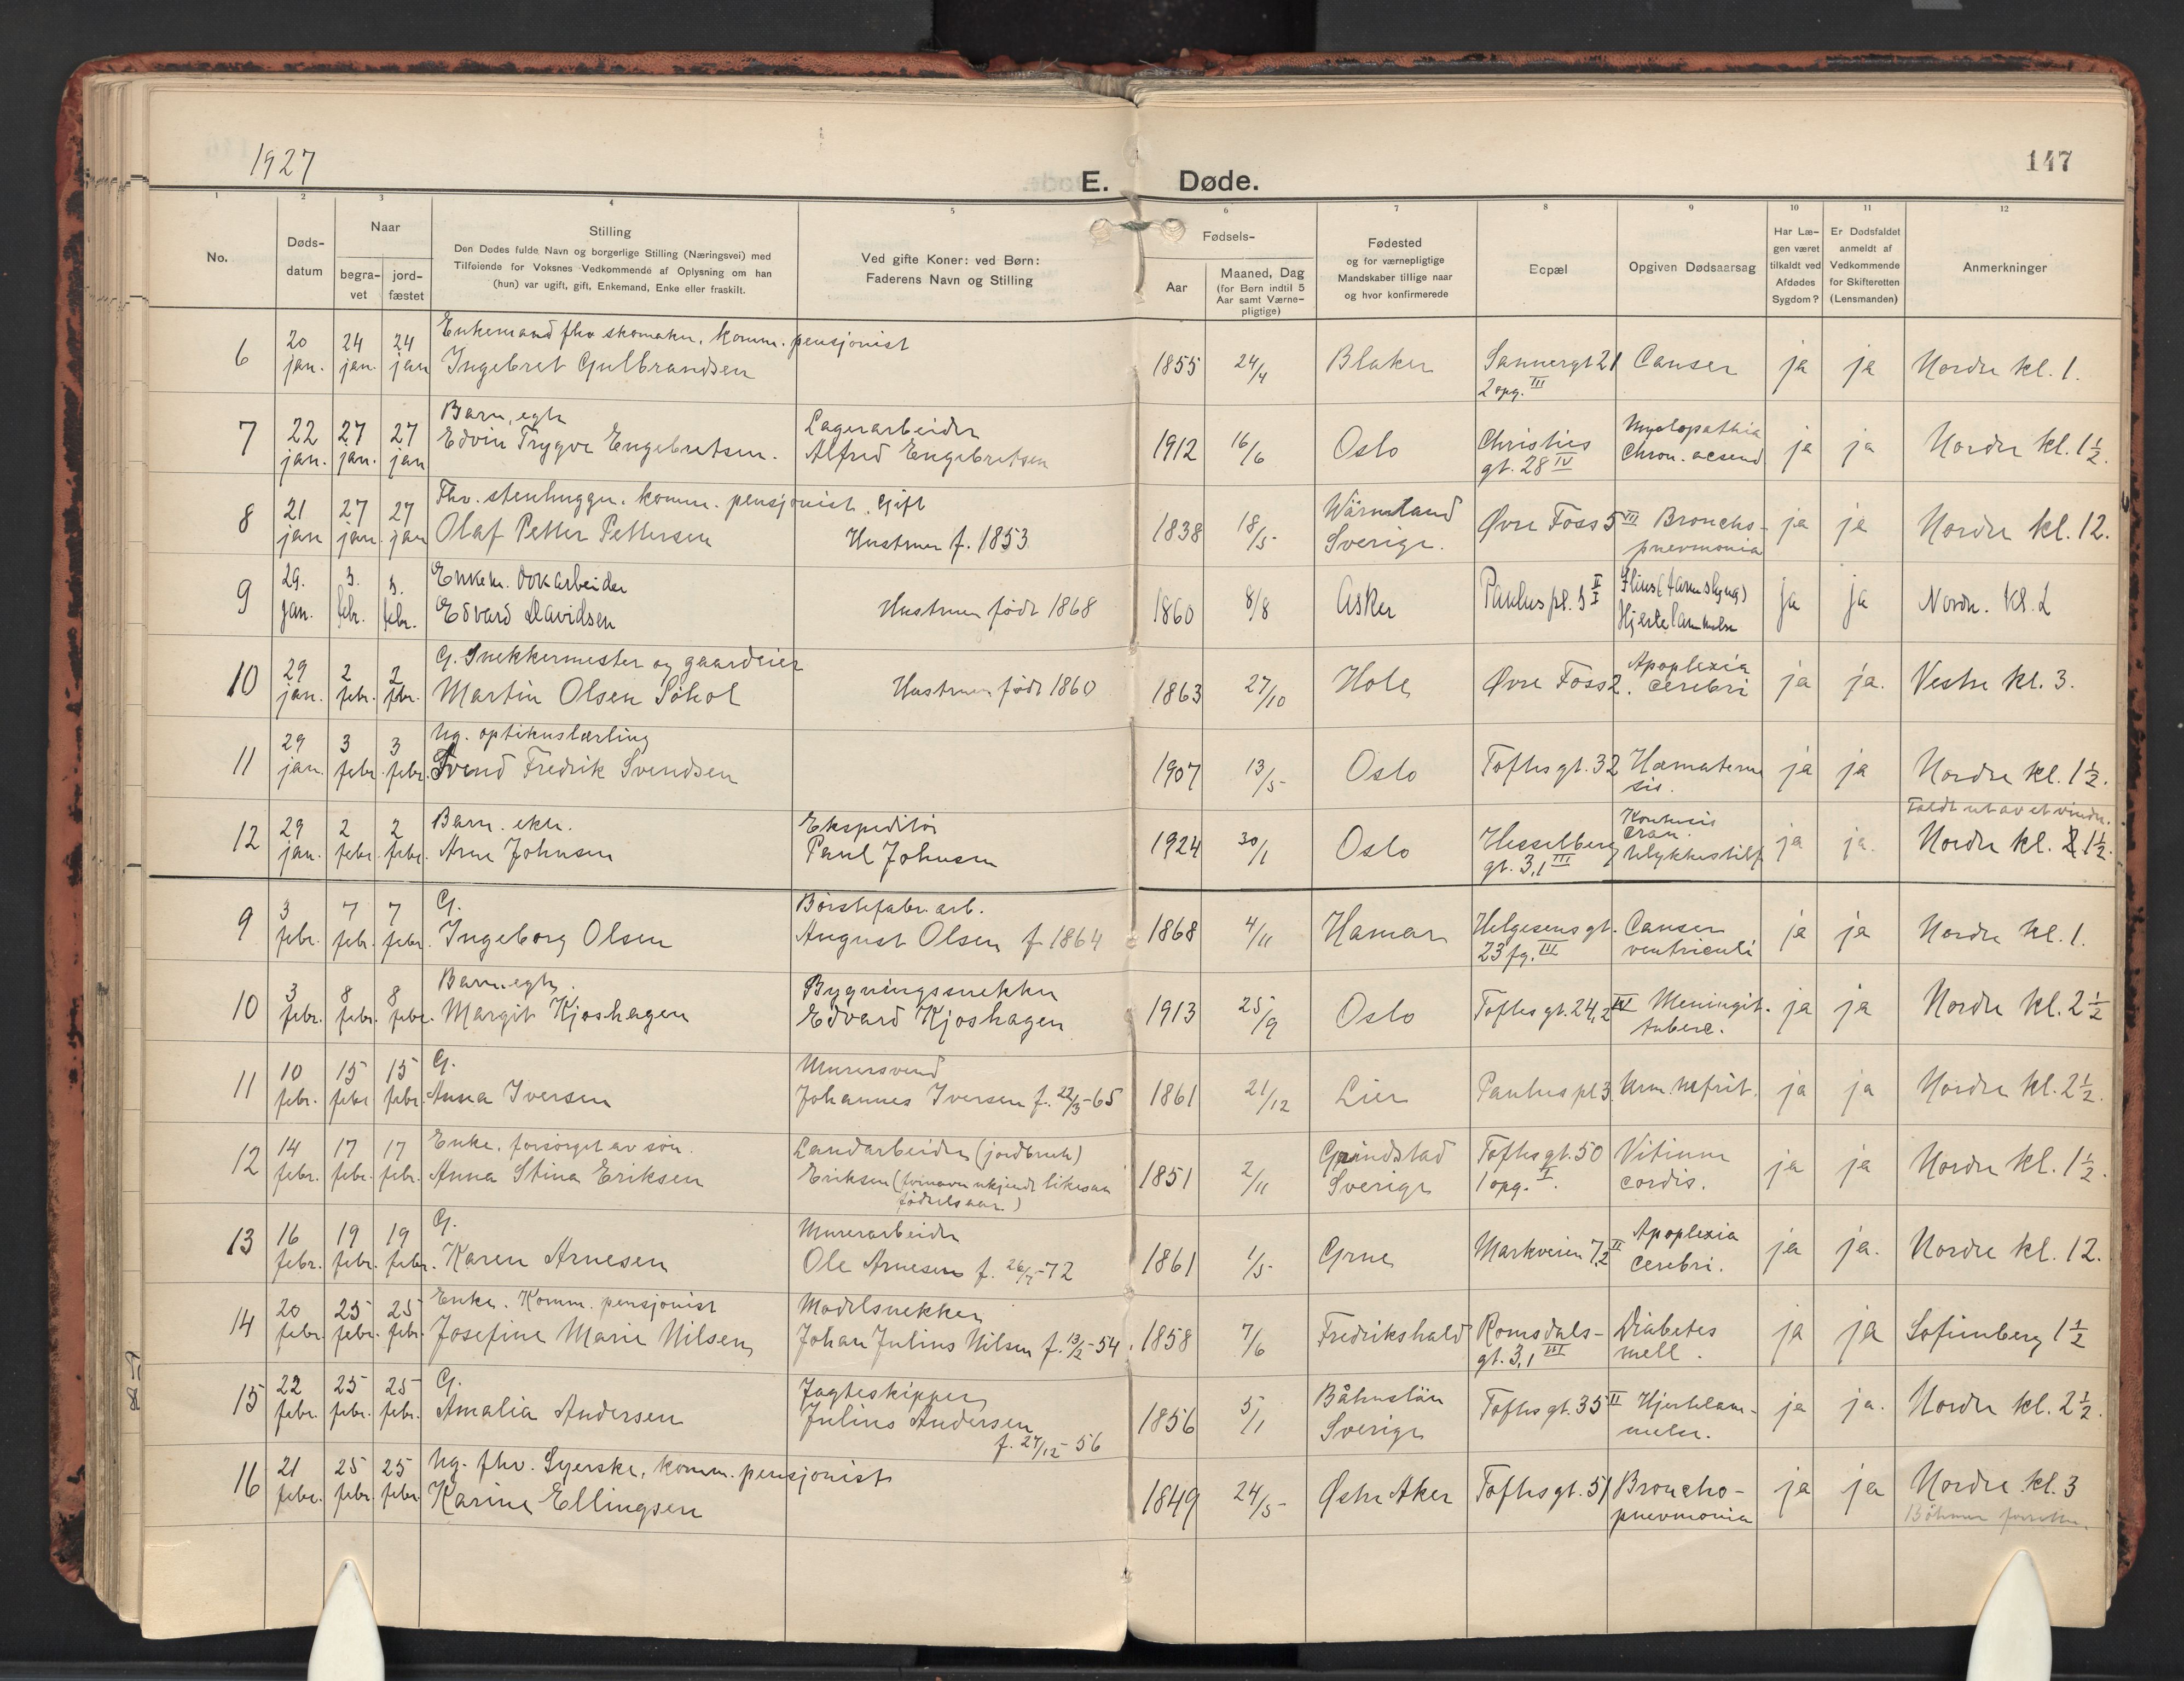 1927
E. Døde.
147
1 2 3 4 5 6 7 8 9 10 11 12
No.
Døds-
datum
Naar
begra-
vet
jord-
fæstet
Stilling
Den Dødes fulde Navn og borgerlige Stilling (Næringsvei) med
Tilføiende for Voksnes Vedkommende af Oplysning om han
(hun) var ugift, gift, Enkemand, Enke eller fraskilt.
Ved gifte Koner: ved Børn:
Faderens Navn og Stilling
Fødsels-
Aar
Maaned, Dag
(for Børn indtil 5
Aar samt Værne-
pligtige)
Fødested
og for værnepligtige
Mandskaber tillige naar
og hvor konfirmerede
Bopæl
Opgiven Dødsaarsag
Har Læ-
gen været
tilkaldt ved
Afdødes
Sygdom?
Er Dødsfaldet
anmeldt af
Vedkommende
for Skifteretten
(Lensmanden)
Anmerkninger
Enkemand fhv skomaker. komm. pensjonist
6 20 jan. 24 jan. 24 jan Ingebret Gulbrandsen 1855 24/4 Blaker Sannergt 21 Canser ja ja Nordre kl. 1.
2 opg. III
Barn, egte Lagerarbeider Myelopathia
7 22 jan. 27 jan. 27 jan Edvin Trygve Engebretsen. Alfred Engebretsen 1912 16/6 Oslo Christies gt. 28 IV chron. acsend ja ja Nordre kl. 1½.
Fhv. stenhugger. komm. pensjonist. Gift
8 21 jan 27 jan. 27 jan Olaf Petter Pettersen Hustruen f. 1853 1838 18/5 Wärmland Sverige. Øvre Foss 5 VII Broncho-pnevmonia ja ja Nordre kl. 12.
Enkem. Dokarbeider
9 29. jan. 3. febr. 3. febr. Edvard Davidsen Hustruen født 1868 1860 8/8 Asker Paulus pl. 3 Ilius (tarmslyng) Hjertelammelse ja ja Nordre. Kl. 2
G. Snekkermester og gaardeier
10 29 jan. 2 febr. 2 febr. Martin Olsen Søhol Hustruen født 1860 1863 27/10 Hole Øvre Foss 2. Apoplexia cerebri ja ja. Vestre kl. 3.
Ug. optikuslærling
11 29 jan. 3 febr. 3 febr. Svend Fredrik Svendsen 1907 13/5 Oslo Toftesgt. 32 Hæmateme sis. ja ja Nordre kl. 1½.
Barn. ekte. Ekspeditør Faldt ut av et vindu.
12 29 jan. 2 febr. 2 febr. Arne Johnsen Paul Johnsen 1924 30/1 Oslo Hesselberg gt. 3,1 III Kontusis cran. Ulykkestilf ja ja. Nordre kl. 2 1½.
G. Børstefabr. arb.
9 3 febr. 7 febr. 7 febr. Ingeborg Olsen August Olsen f. 1864 1868 4/11 Hamar Helgesens gt. 23 fg. III Canser ventriculi ja ja Nordre kl. 1.
Barn. egte. Bygningssnekker
10 3 febr. 8 febr. 8 febr. Margit Kjoshagen Edvard Kjoshagen 1913 25/9 Oslo Toftes gt. 24,2 IV Meningit. tuberc. ja ja Nordre kl. 2½
G. Murersvend
11 10 febr. 15 febr 15 febr. Anna Iversen Johannes Iversen f. 22/3-65 1861 21/12 Lier Paulus pl 3 Urm. Nefrit. ja ja Nordre kl. 2½.
Enke. forsørget av søn. Landarbeider (jordbruk)
12 14 febr. 17 febr. 17 febr. Anna Stina Eriksen Eriksen (fornavn ukjendt likesaa fødselsaar) 1851 2/11 Grindstad Sverige Toftesgt. 50 1 opg. I. Vitium cordis. ja ja Nordre kl. 1½.
G. Murerarbeider
13 16 febr. 19 febr. 19 febr. Karen Arnesen Ole Arnesen f. 26/7-72 1861 1/5 Grue Markveien 7,2 II Apoplexia cerebri. ja ja. Nordre kl. 12.
Enke. Komm. pensjonist Modelsnekker
14 20 febr. 25 febr. 25 febr. Josefine Marie Nilsen Johan Julius Nilsen f. 13/2-54. 1858 7/6 Fredrikshald Romsdals-gt. 3,1 III Diabetes mell. ja ja Sofienberg 1½
G. Jagteskipper
15 22 febr. 25 febr. 25 febr. Amalia Andersen Julius Andersen f. 27/12-56 1856 5/1 Båhuslän Sverige Toftesgt. 35 II Hjertelam-melse. ja ja. Nordre kl. 2½.
Ug. fhv. Syerske, komm. pensjonist
16 21 febr. 25 febr. 25 febr Karine Ellingsen 1849 24/5 Østre Aker Toftesgt. 51 Broncho-pnevmonia ja ja Nordre kl. 3